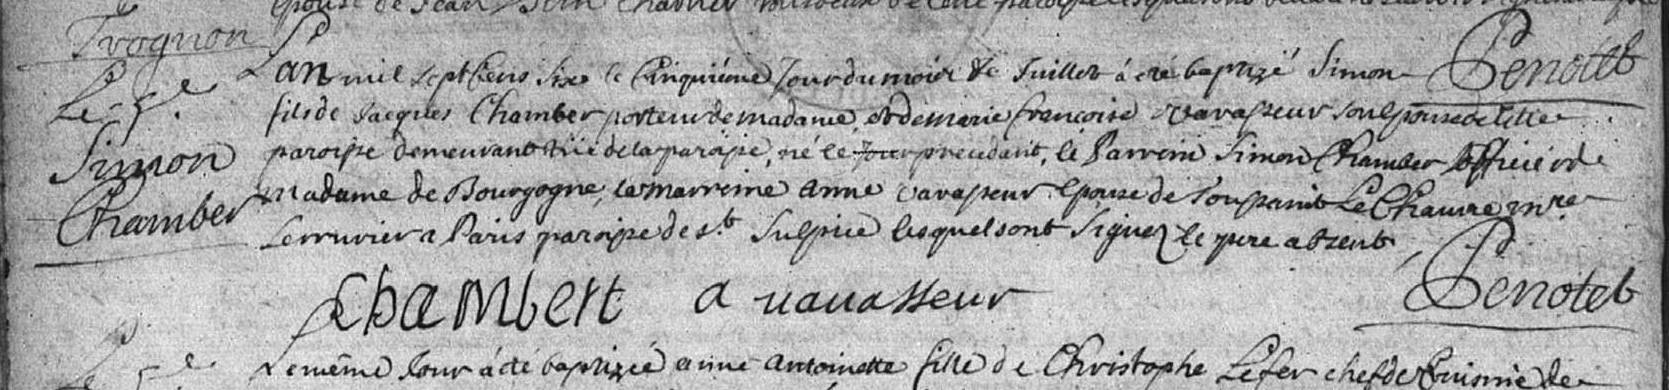 épouse de Jean
Trognon
Penotet
Le 5e
Simon
Chamber
L'an mil sept cens six le Cinquiéme Jour du mois de Juillet á été baptizé Simon
fils de Jacques Chamber porteur de madame, et de marie françoise vavasseur son épouse de cette
paroisse demeurant rüe de la paroisse, né le jour precedant, le Parrein Simon Chamber officier de
Madame de Bourgogne, la marreine anne vavasseur Epouse de Toussaint Le Chauve mre
serrurier a Paris paroisse de St Sulpice lesquels ont Signez le pere absent
Chambert a vavasseur
Penotet
Le 5e
Le même Jour á été baptizée anne antoinette fille de Christophe Lefer chef de Cuisine de